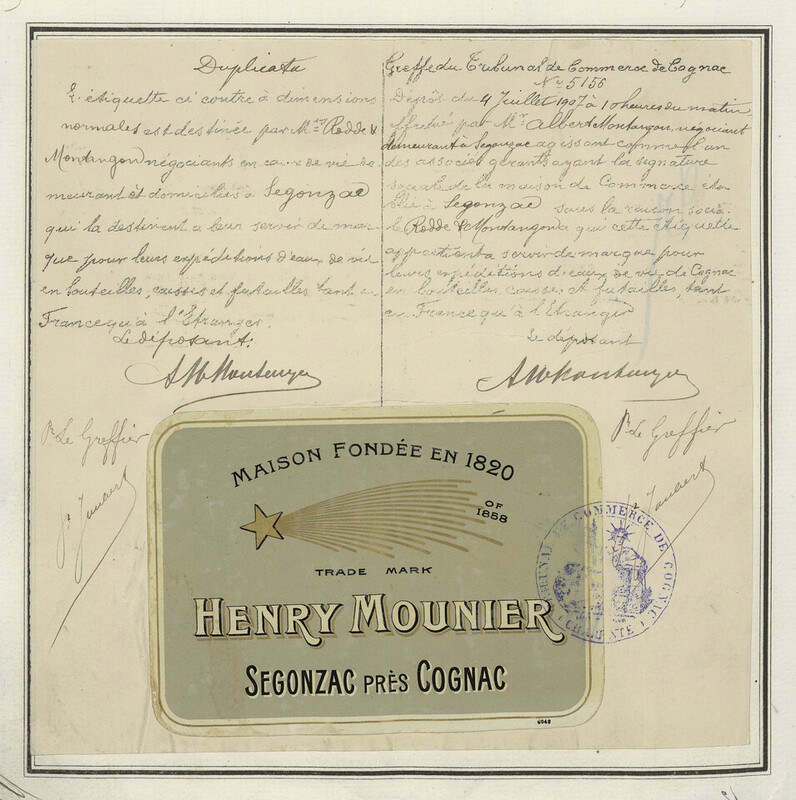 Duplicata
L'étiquette ci contre à dimensions
normales est destinée par Mrs Redde &
Montangon négociants en eaux de vie de-
meurant et domiciliés à Segonzac
qui la destinent à leur servir de mar-
que pour leurs expéditions d'eaux de vie
en bouteilles, caisses et futailles tant en
France qu'à l'Etranger.
Le déposant:
P. Le Greffier
Greffe du Tribunal de Commerce de Cognac
No 5156
Dépôt du 4 Juillet 1907 à 10 heures du matin
effectué par Mr Albert Montangon, négociant
demeurant à Segonzac agissant comme l'un
des associés gérants ayant la signature
sociale de la maison de Commerce éta-
blie à Segonzac sous la raison socia-
le Redde & Montangon à qui cette étiquette
appartient à servir de marque pour
leurs expéditions d'eaux de vie de Cognac
en bouteilles caisses et futailles, tant
en France qu'à l'Etranger
Le déposant
P. Le Greffier
MAISON FONDÉE EN 1820
OF
1858
TRADE MARK
HENRY MOUNIER
SEGONZAC PRÈS COGNAC
TRIBUNAL DE COMMERCE DE COGNAC
CHARENTE